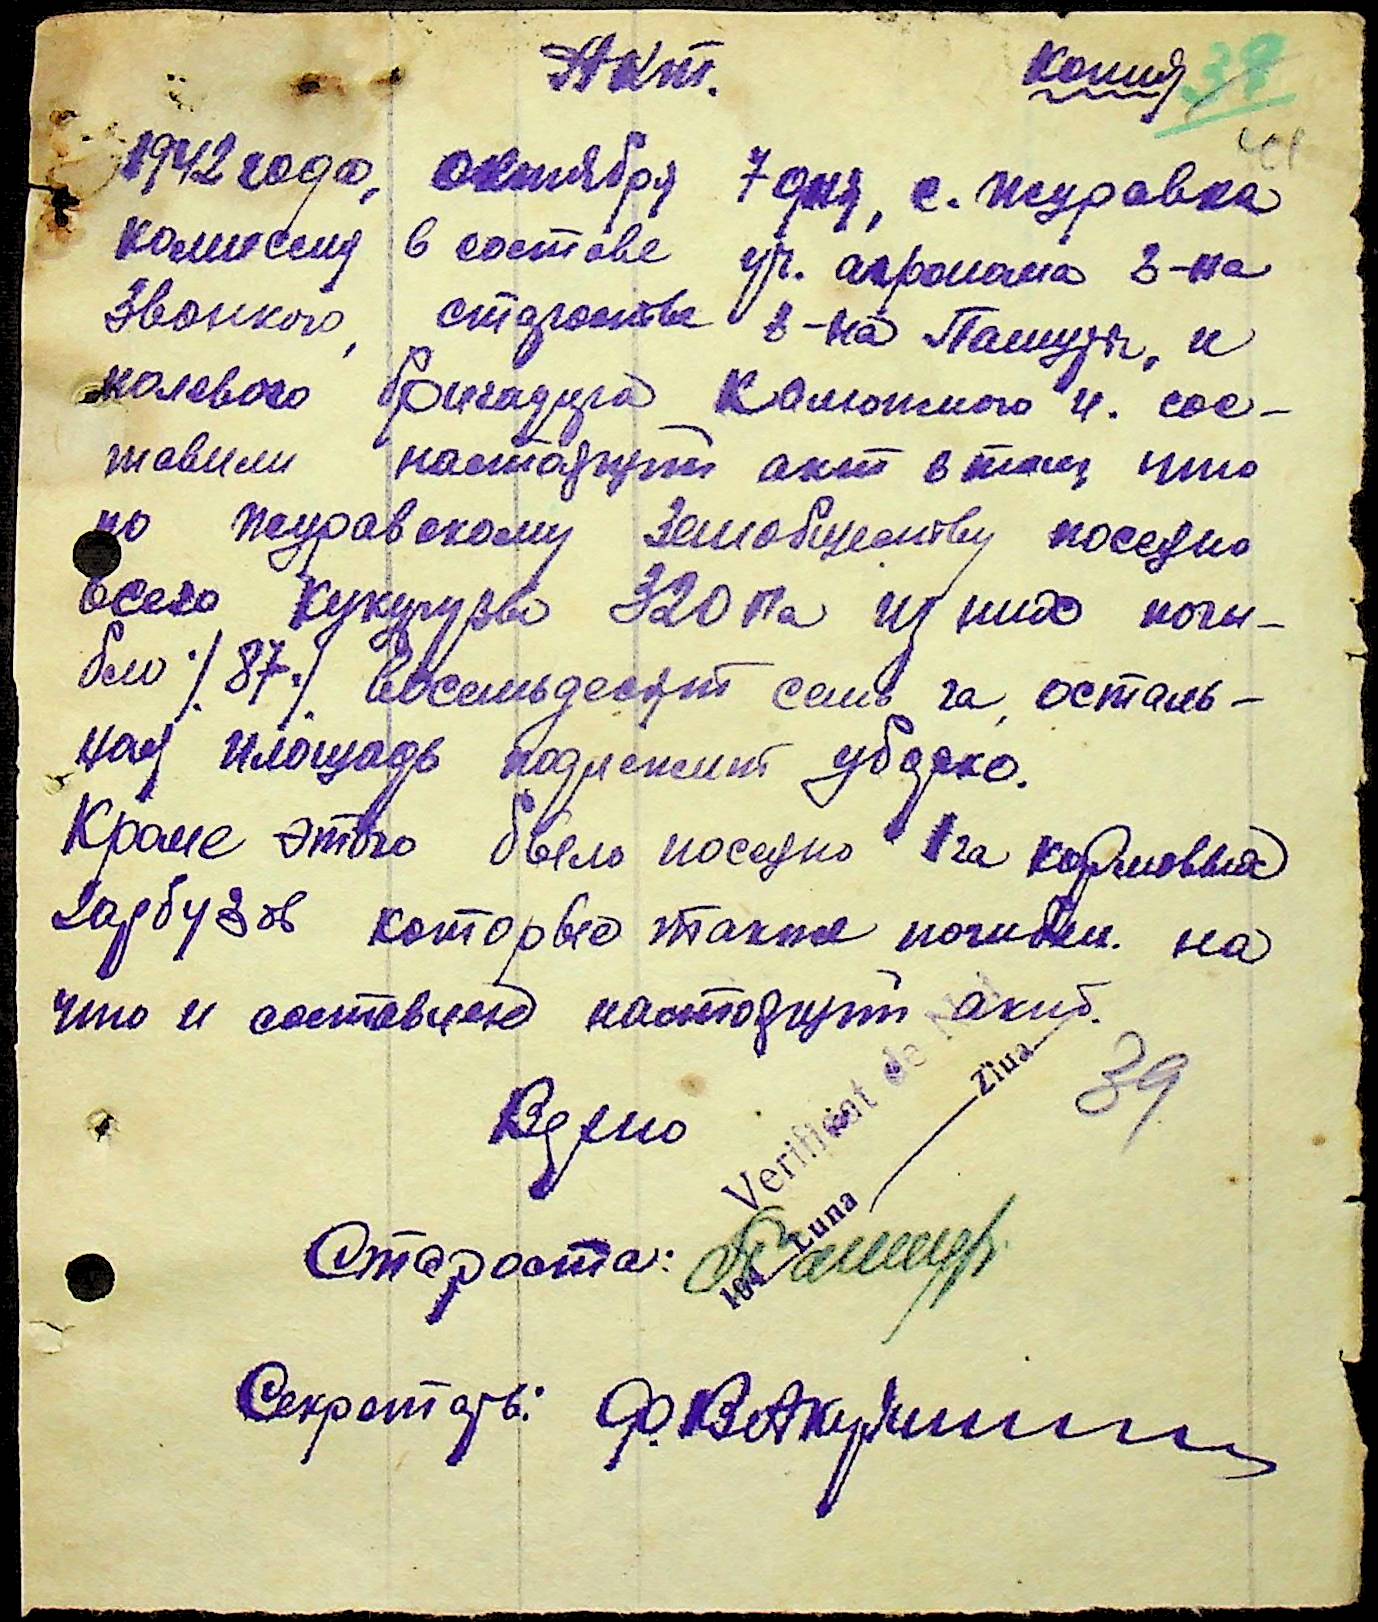 Акт.
Копия
39
1942 года, октября 7 дня, с. Журавка
комиссия в составе уч. агронома г-на
Звонкого, старосты г-на Пашура, и
полевого бригадира Каможного И. сос-
тавили настоящий акт в том, что
по Журавскому Земобществу посеяно
всего кукурузы 320 га из них поги-
бло ./ 87./ восемьдесят семь га, осталь-
ная площадь подлежит уборке.
Кроме этого было посеяно 1 га кормовых
гарбузов которые также погибли. на
что и составлен настоящий акт.
39
Verificat de
Ziua
Luna
194
Верно
Староста: Пашур
Секретарь: Ф. Вакулин